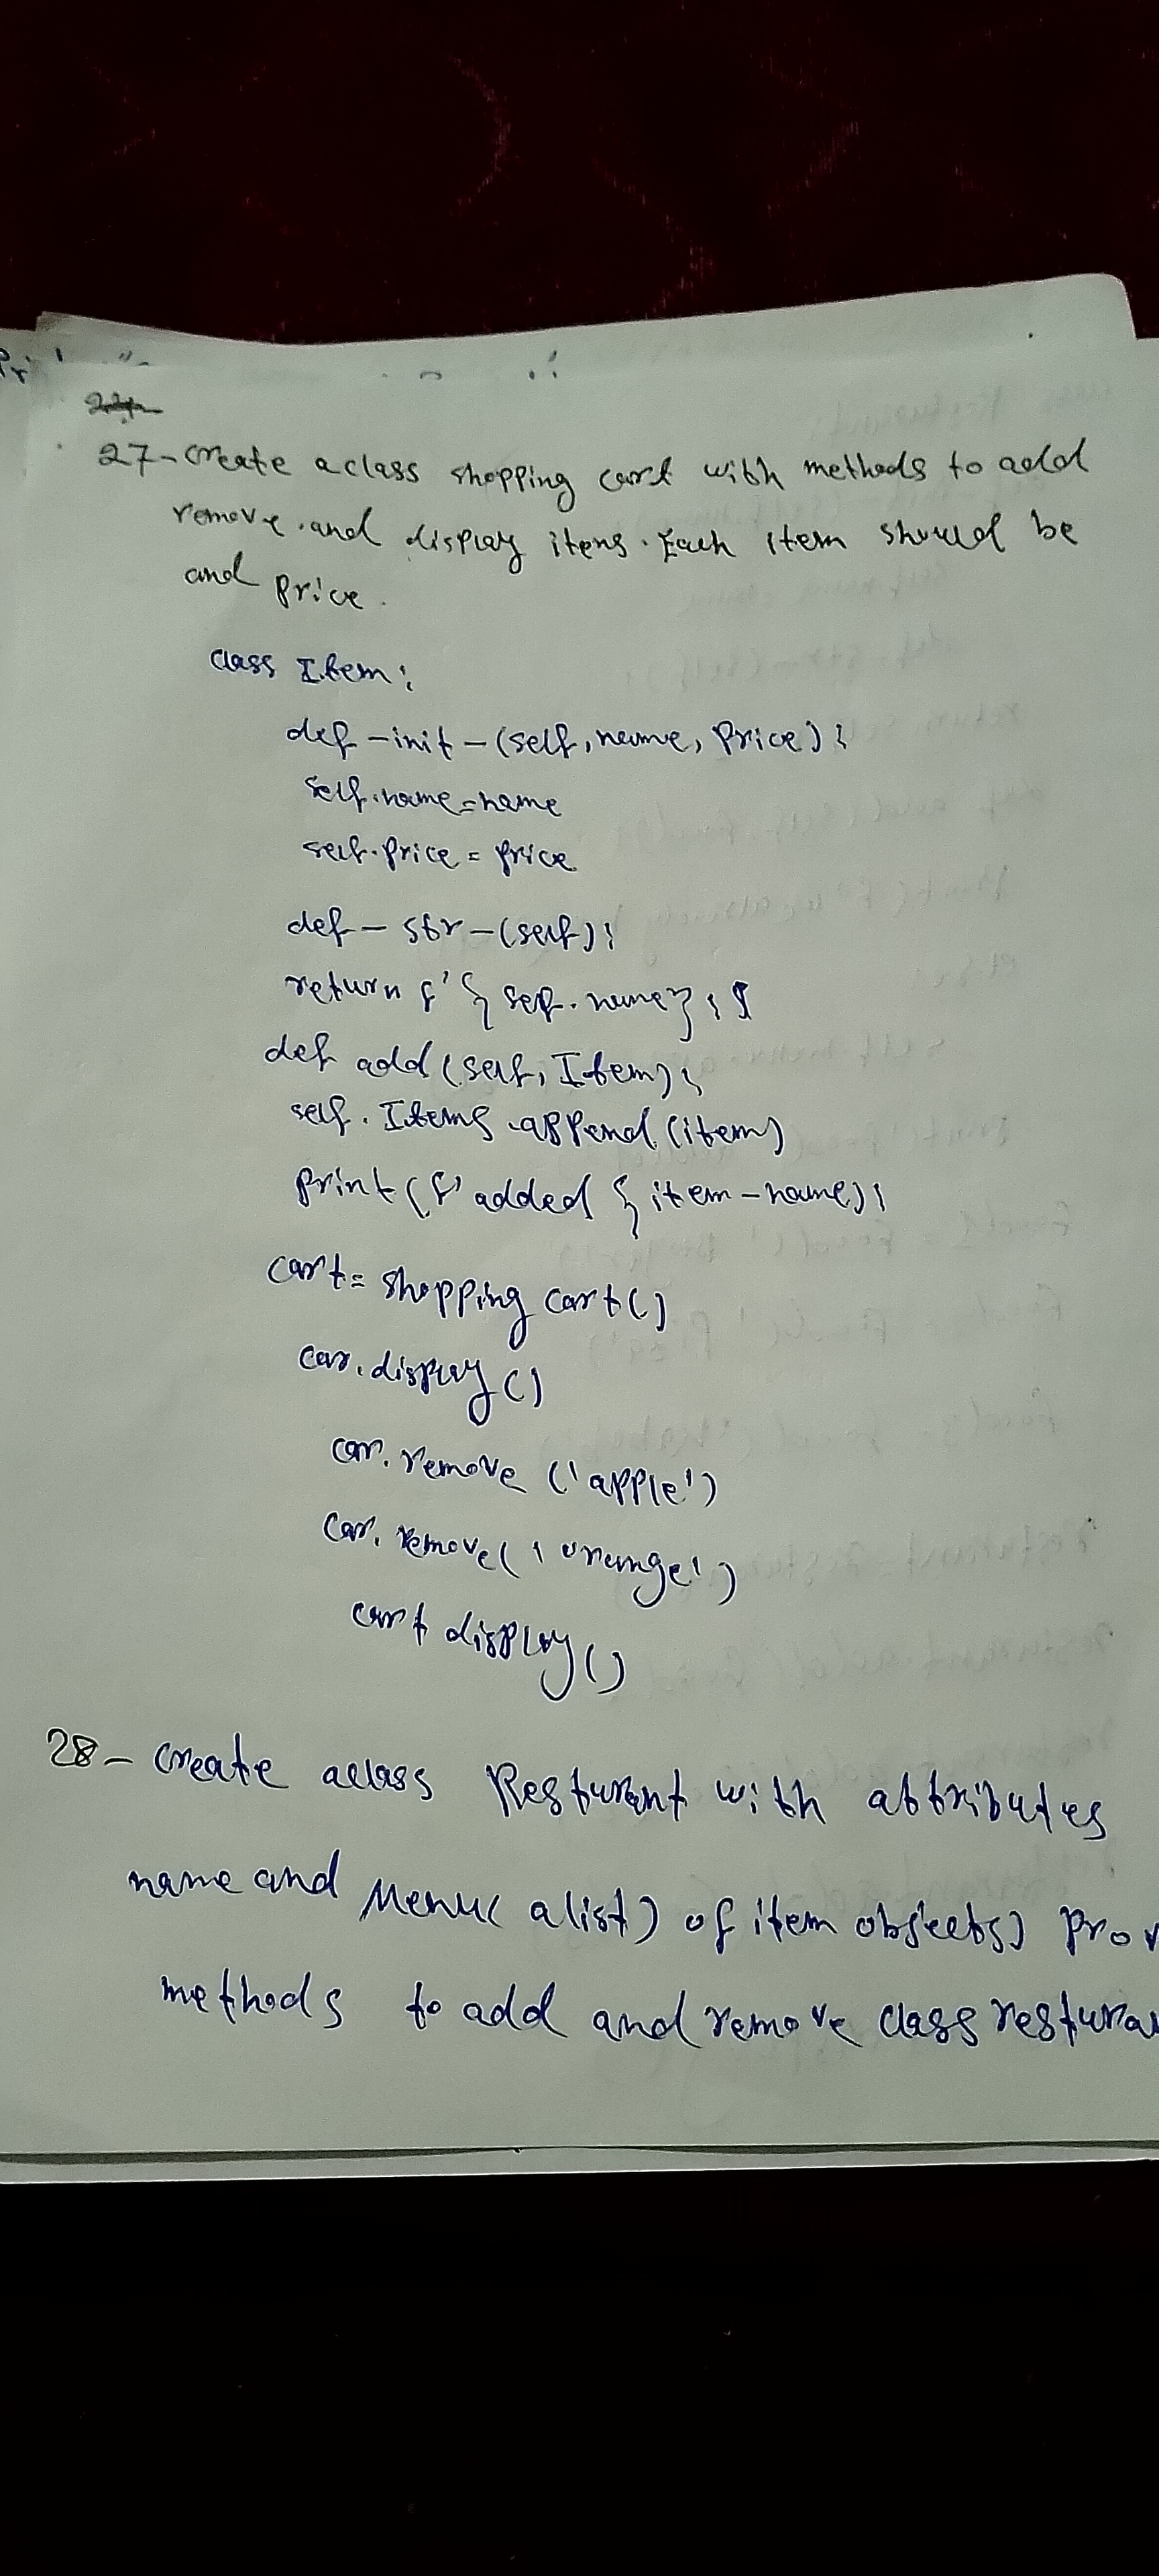 27- create a class shopping cart with methods to add
remove and display items. Each item should be
and price.
class Item:
def -init-(self, name, price):
self.name=name
self.price = price
def - str -(self):
return f'{ self.name} :
def add (self, Item):
self. Items .append (item)
print (f' added { item - name):
cart= shopping cart()
car.display()
car. remove ('apple')
car. remove( 'orange')
cart display()
28- create aclass Resturant with attributes
name and Menu( a list) of item objects) prov
methods to add and remove class restura